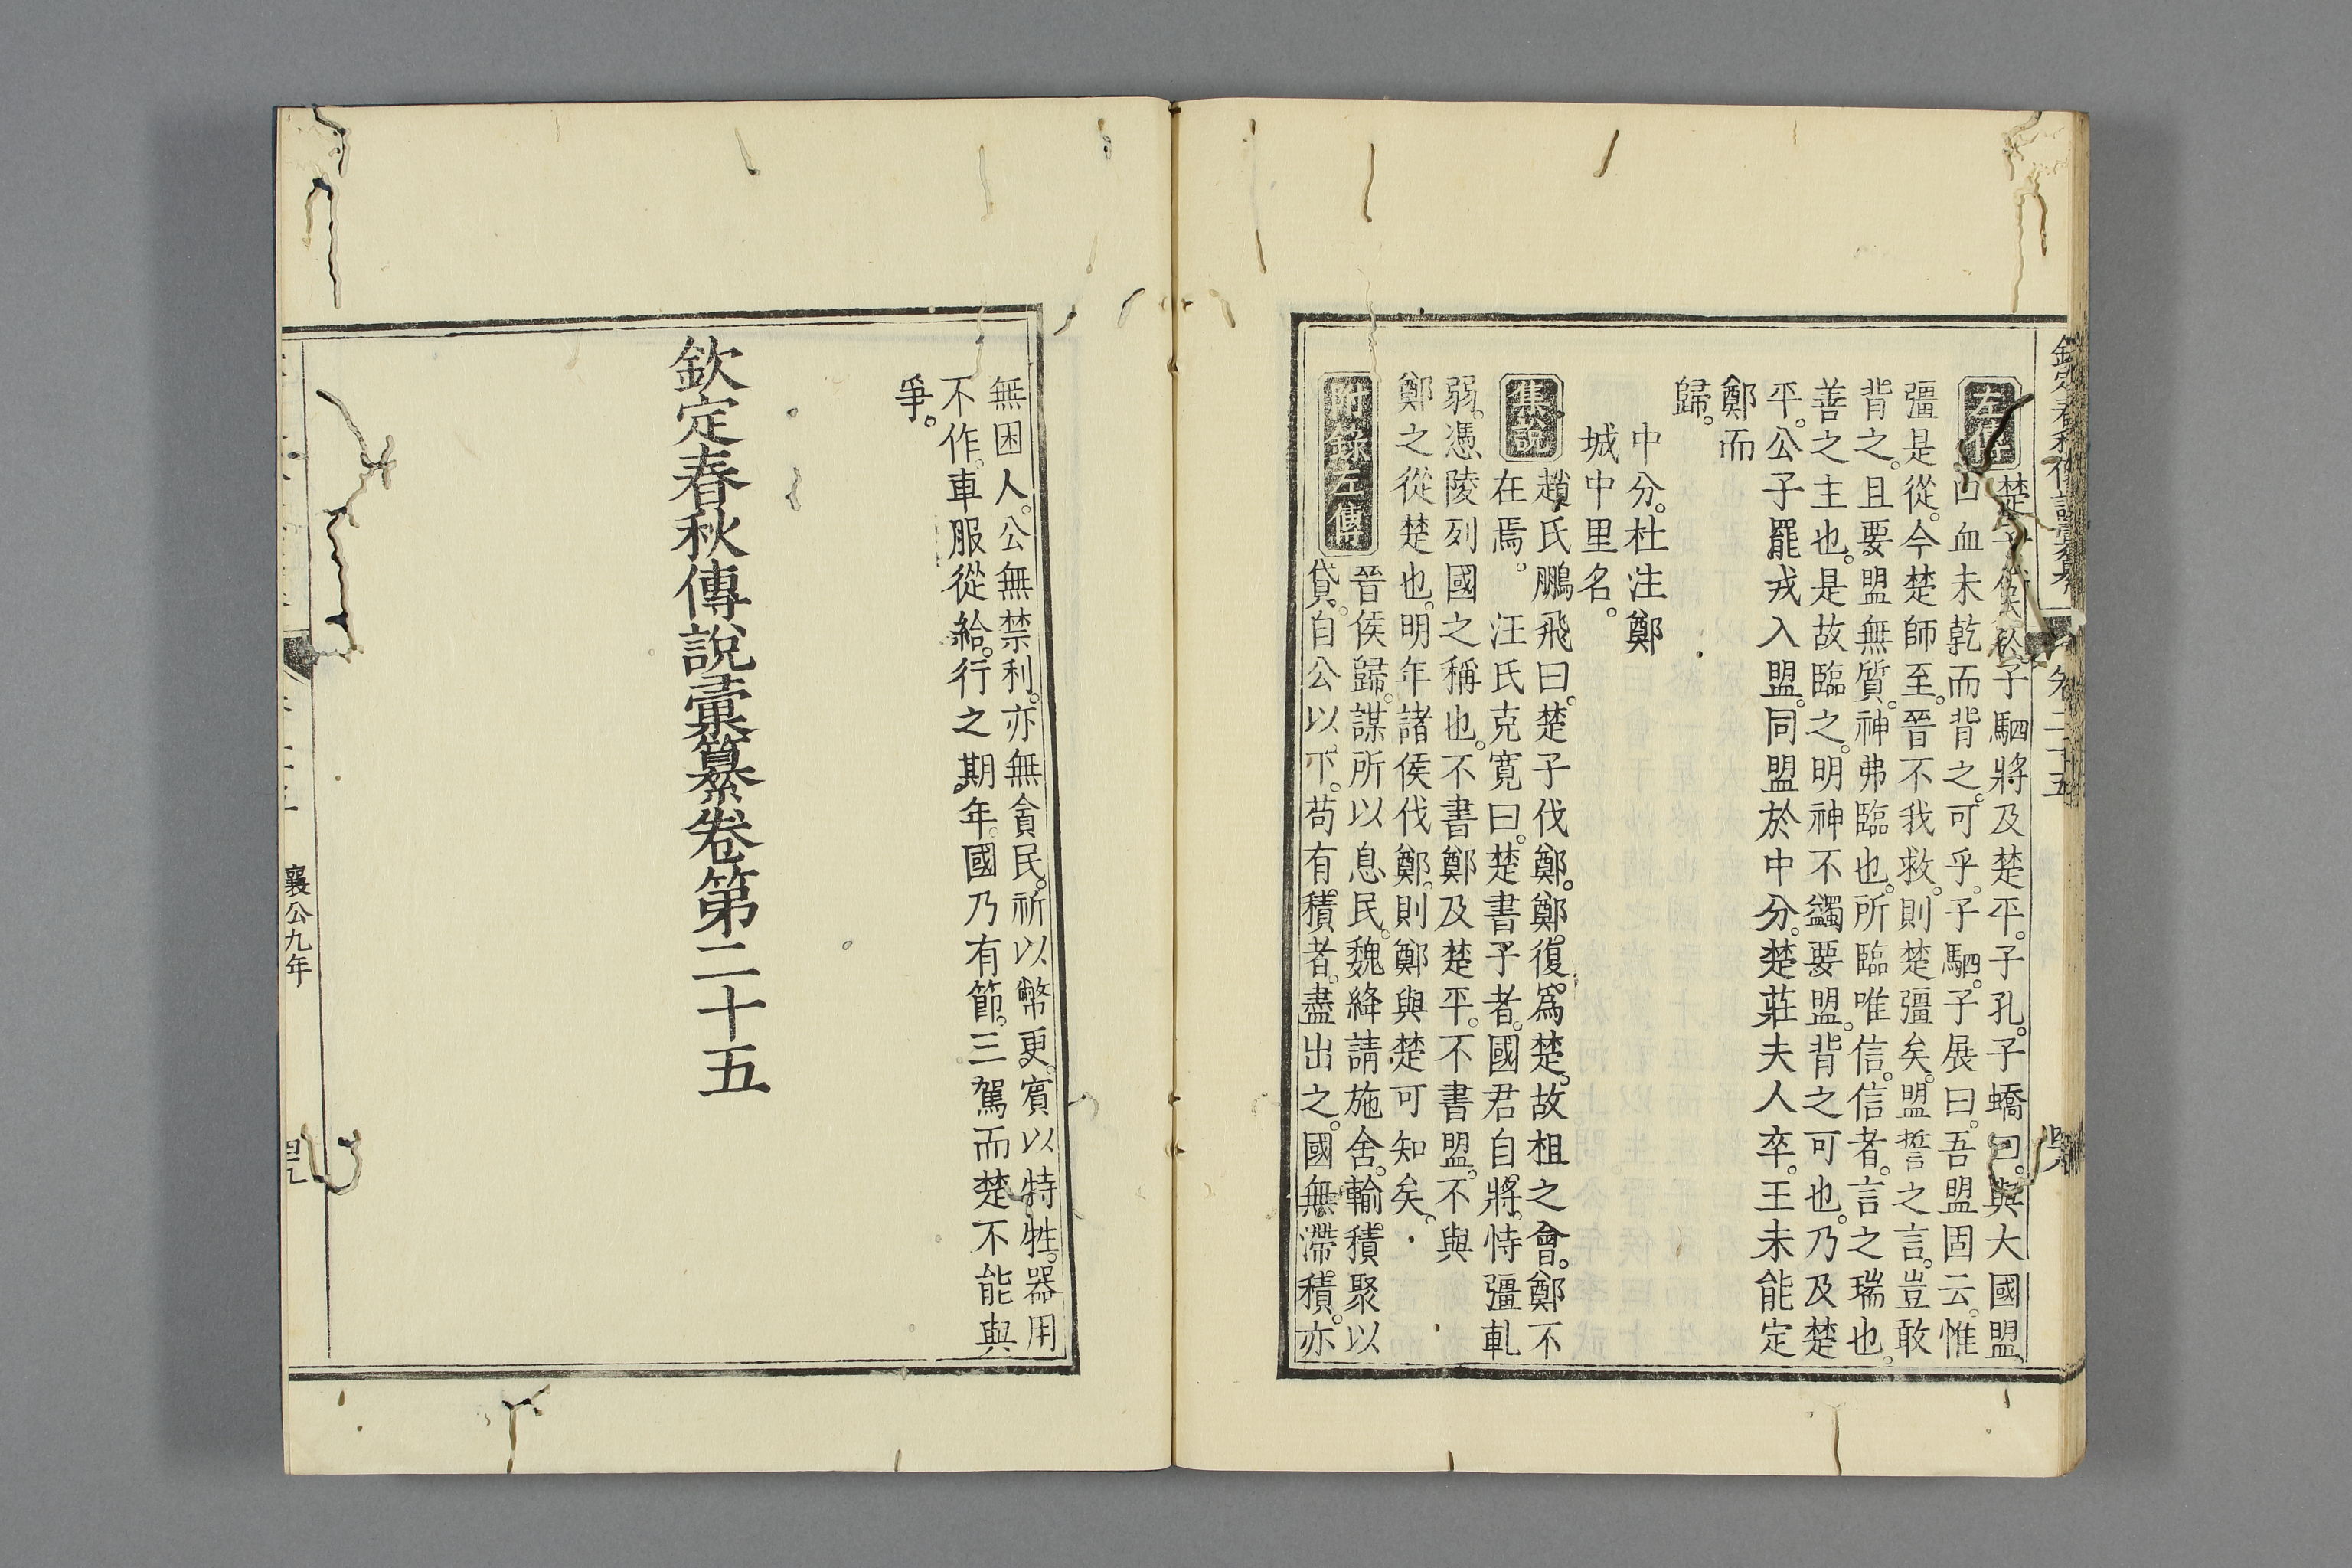 欽定春秋傳說彙纂 卷二十五
左傳 楚子伐鄭。子駟將及楚平。子孔。子蟜曰。與大國盟。
口血未乾而背之。可乎。子駟。子展曰。吾盟固云。惟
彊是從。今楚師至。晉不我救。則楚彊矣。盟誓之言。豈敢
背之。且要盟無質。神弗臨也。所臨唯信。信者。言之瑞也。
善之主也。是故臨之。明神不蠲要盟。背之可也。乃及楚
平。公子罷戎入盟。同盟於中分。楚莊夫人卒。王未能定
鄭而
歸。
中分。杜注鄭
城中里名。
集說 趙氏鵬飛曰。楚子伐鄭。鄭復爲楚。故柤之會。鄭不
在焉。 汪氏克寬曰。楚書子者。國君自將。恃彊軋
弱。憑陵列國之稱也。不書鄭及楚平。不書盟。不與
鄭之從楚也。明年諸侯伐鄭。則鄭與楚可知矣。
附錄左傳 晉侯歸。謀所以息民。魏絳請施舍。輸積聚以
貸。自公以下。苟有積者。盡出之。國無滯積。亦
無困人。公無禁利。亦無貪民。祈以幣更。賓以特牲。器用
不作。車服從給。行之期年。國乃有節。三駕而楚不能與
爭。
欽定春秋傳說彙纂卷第二十五
襄公九年